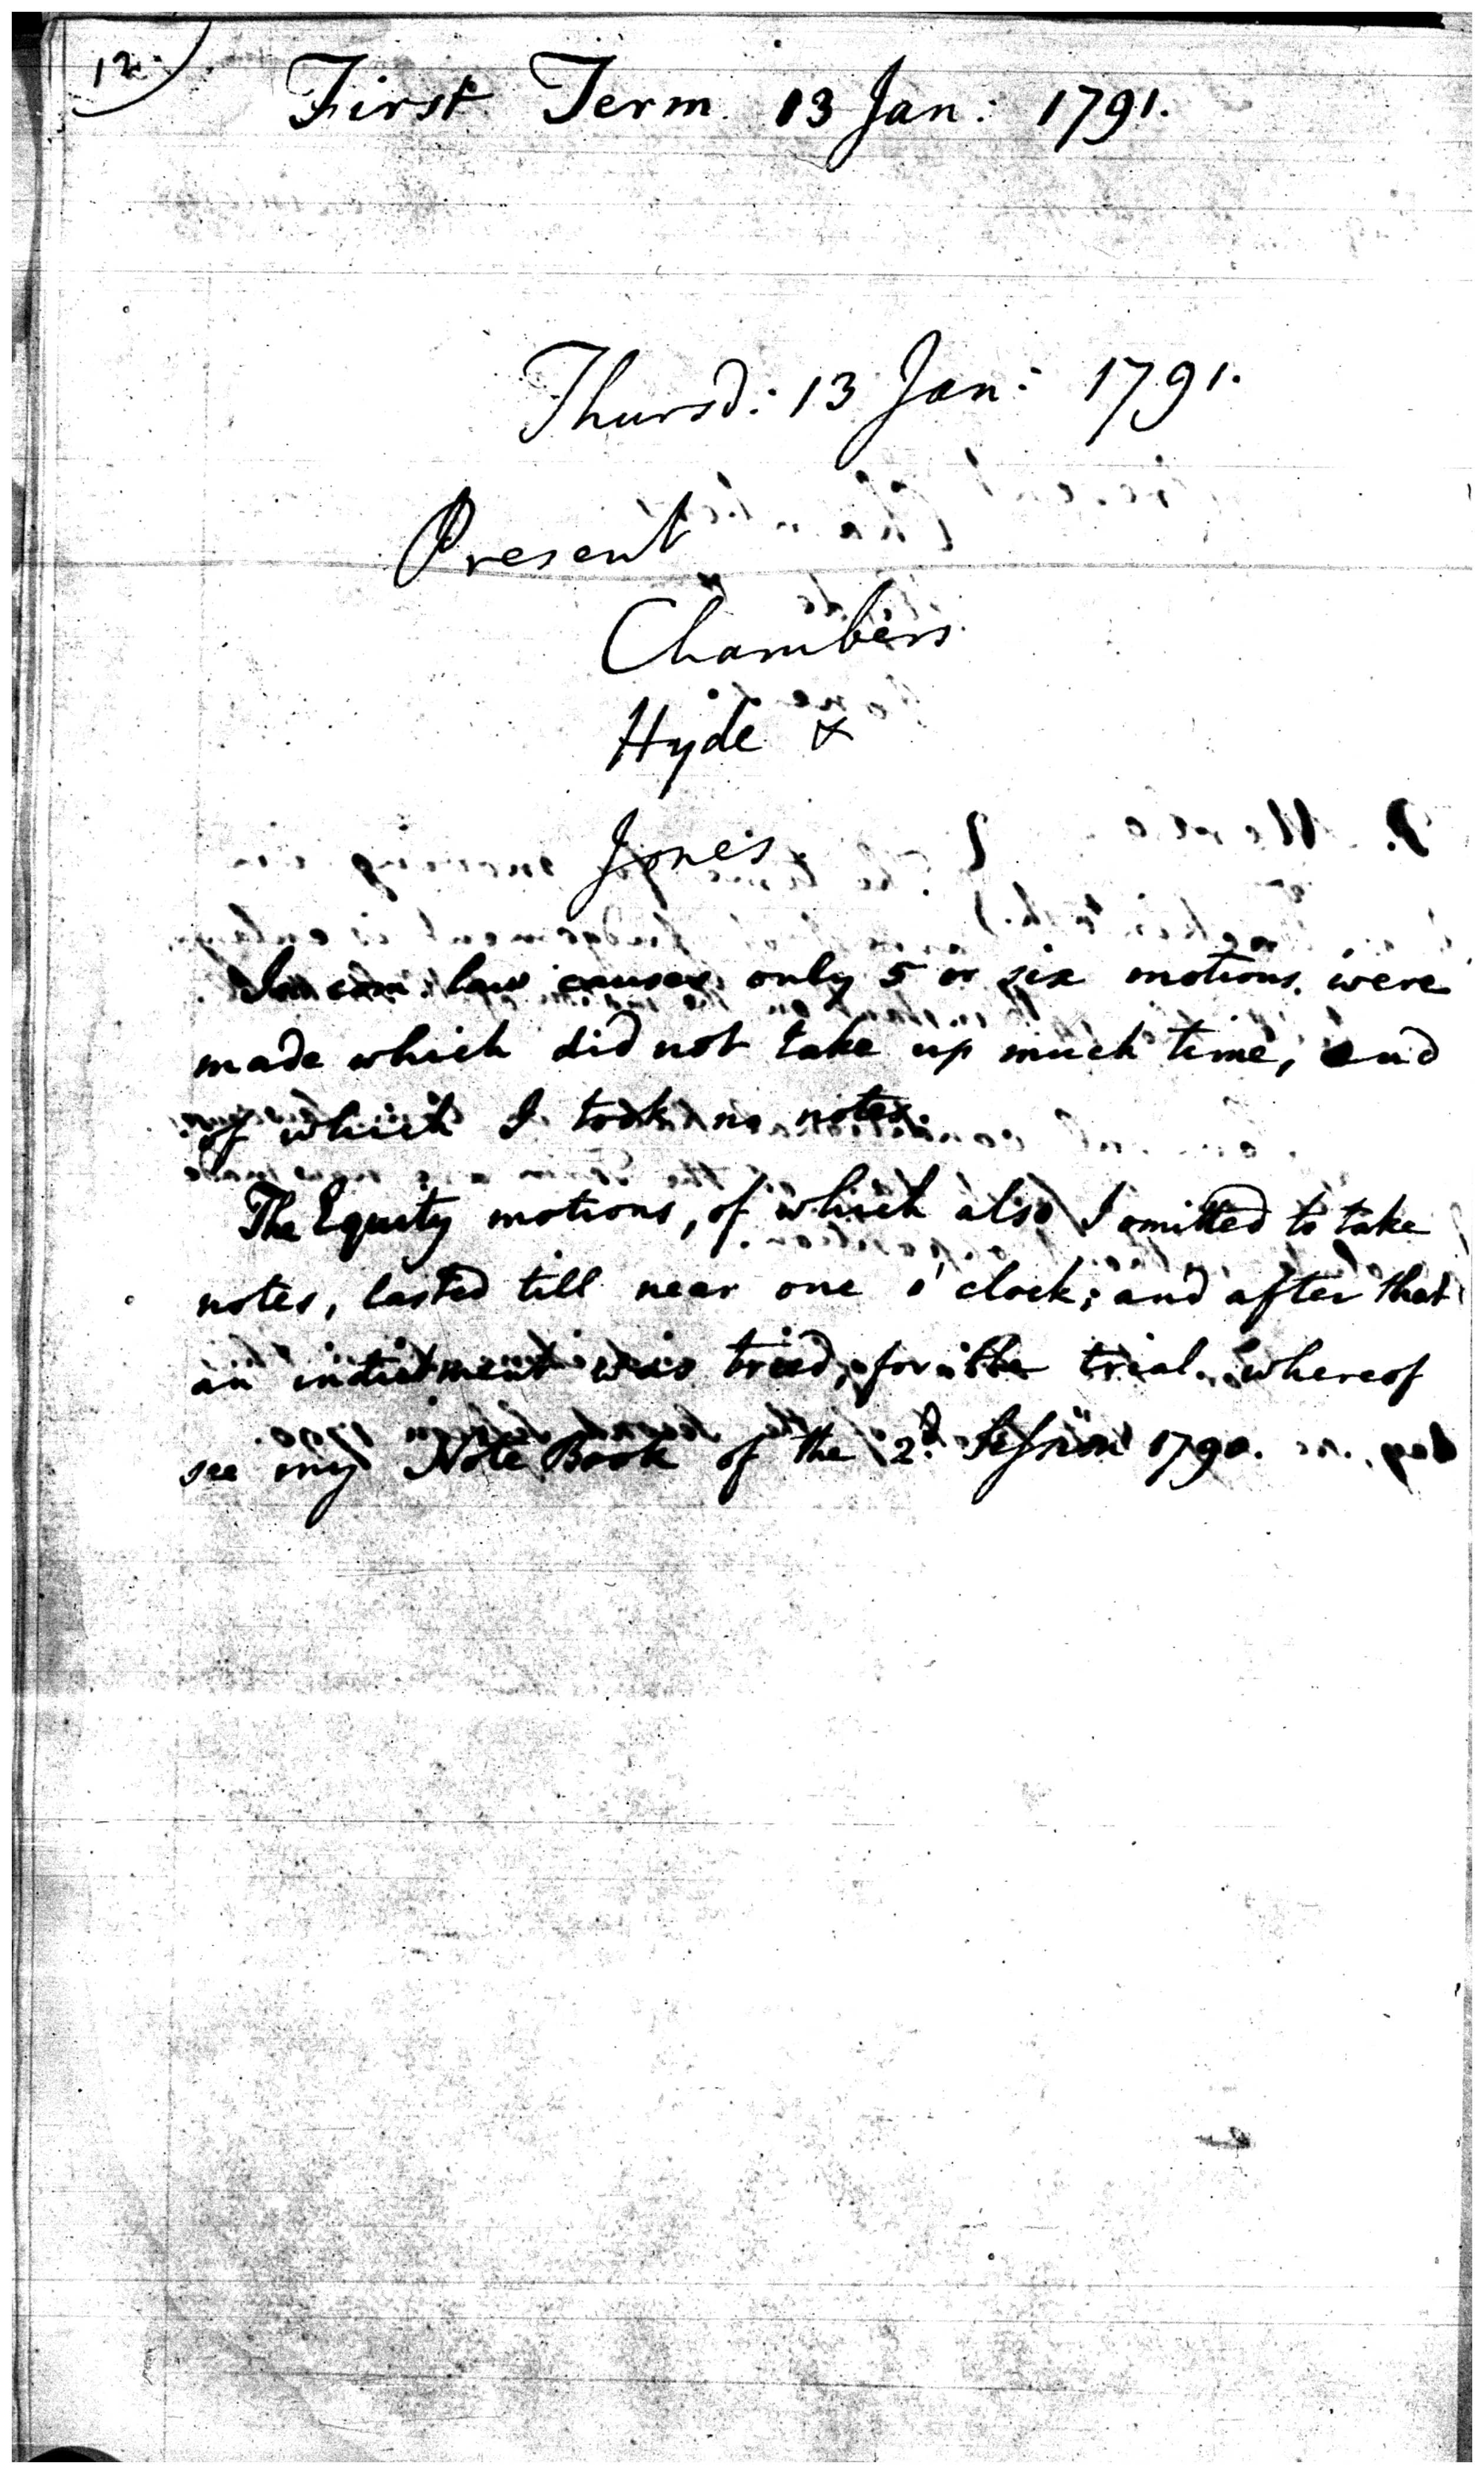 12.
First Term. 13 Jan: 1791.
Thursd: 13 Jan: 1791.
Present
Chambers
Hyde &
Jones.
In com law causes only 5 or six motions were
made which did not take up much time, and
of which I took no notes.
The Equity motions, of which also I omitted to take
notes, lasted till near one o'clock; and after that
an indictment was tried, for the trial whereof
see my Note Book of the 2d. Session 1790.